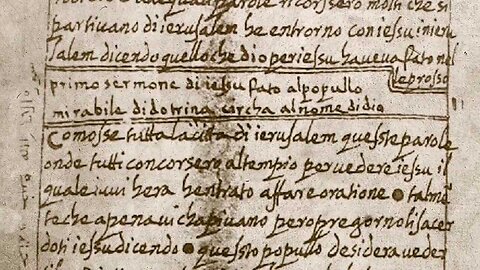 parole ricorsero molti che si
partivano di ierusalem he entorno con iessu in ieru
salem dicendo quello che dio per iessu haueva fato nel
leprosso
primo sermone di iessu fato al popullo
mirabile di dotrina circha al nome di dio
Comosse tutta la cita di ierusalem quesste parole
onde tutti concorsero al tempio per vedere iessu il
quale iui hera hentrato affare oratione ● talmē
te che apena ui chapiuano pero pregorno li sacer
doti iessu dicendo ● quessto popullo desidera veder